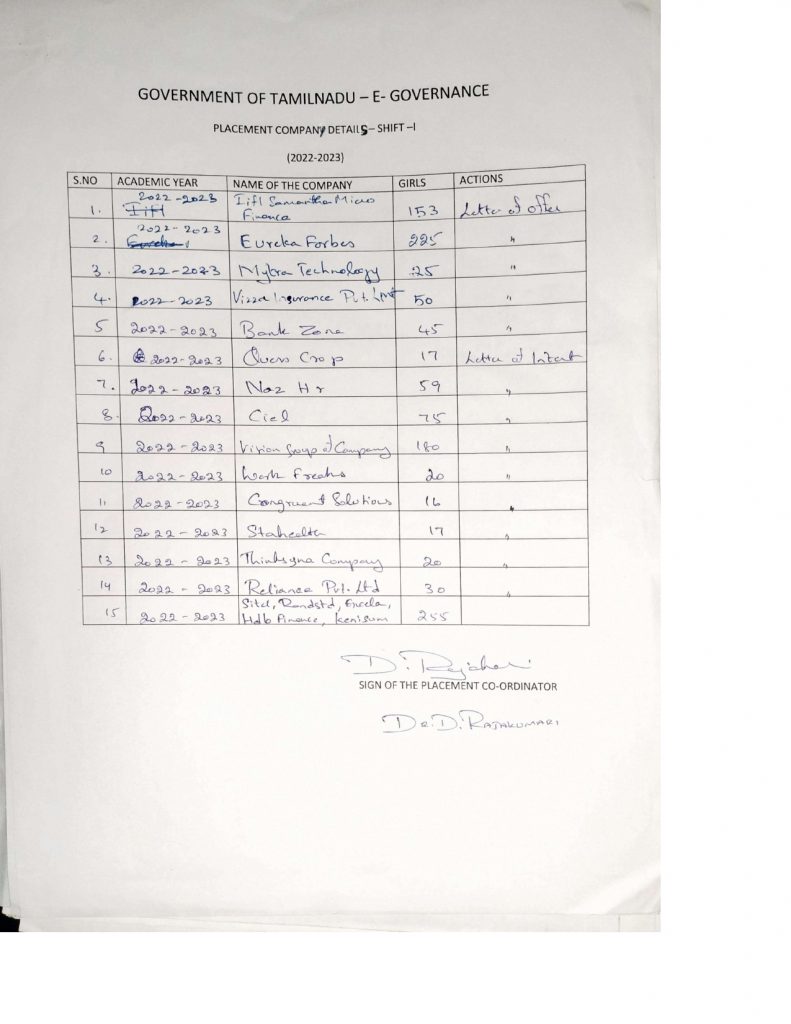 GOVERNMENT OF TAMILNADU – E- GOVERNANCE
PLACEMENT COMPANY DETAILS – SHIFT –I
(2022-2023)
S.NO ACADEMIC YEAR NAME OF THE COMPANY GIRLS ACTIONS
1. 2022-2023 Iifl Samantha Micro Finance 153 Letter of offer
2. 2022-2023 Eureka Forbes 225 "
3. 2022-2023 Mytra Technology 25 "
4. 2022-2023 Vizza Insurance Pvt. Lmt 50 "
5 2022-2023 Bank Zone 45 "
6. 2022-2023 Quess Crop 17 Letter of Intent
7. 2022-2023 Naz Hr 59 "
8. 2022-2023 Ciel 75 "
9 2022-2023 Vision Group of Company 180 "
10 2022-2023 Work Freaks 20 "
11 2022-2023 Congruent Solutions 16 "
12 2022-2023 17 "
13 2022-2023 Thinksyna Company 20 "
14 2022-2023 Reliance Pvt. Ltd 30 "
15 2022-2023 Sitel, Randstd,
Hdb Finance, 255
SIGN OF THE PLACEMENT CO-ORDINATOR
DR. D. RAJAKUMARI